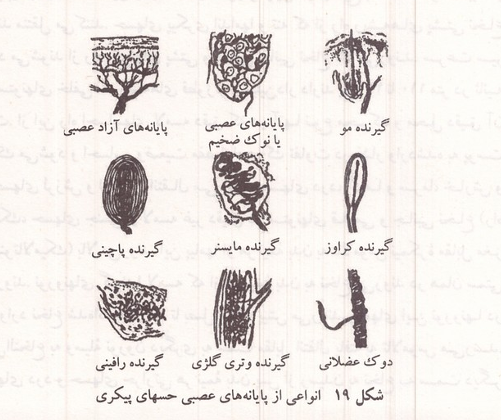 گیرنده مو
پایانه‌های عصبی
یا نوک ضخیم
پایانه‌های آزاد عصبی
گیرنده کراوز
گیرنده مایسنر
گیرنده پاچینی
دوک عضلانی
گیرنده وتری گلژی
گیرنده رافینی
شکل ۱۹ انواعی از پایانه‌های عصبی حسهای پیکری